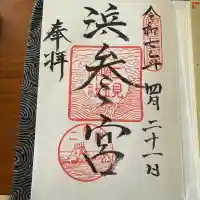 令和七年四月二十一日
浜参宮
奉拝